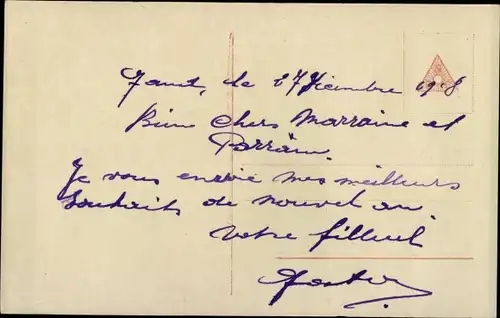 le 27 Décembre
Bien Chers Marraine et
Parrain.
Je vous envoie mes meilleurs
souhaits de nouvel an.
Votre filleul